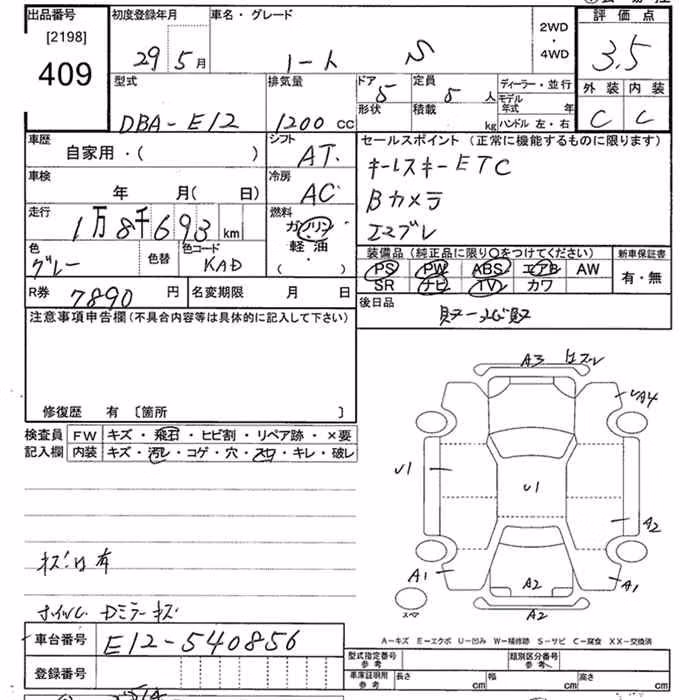 出品番号 初度登録年月 車名・グレード 評価点
[2198] 29 5月 ノート S 2WD・4WD 3.5
409
型式 排気量 ドア 5 定員 5人 ディーラー・並行 外装 内装
DBA-E12 1200 CC 形状 積載 kg モデル年式 年 C C
ハンドル 左・右
車歴 シフト セールスポイント(正常に機能するものに限ります)
自家用・( ) AT キーレスキー ETC
車検 冷房 Bカメラ
年 月( 日) AC エマブレ
走行 燃料
1万8千693km ガソリン
色 色替 色コード 軽油・ 装備品(純正品に限り○をつけてください) 新車保証書
グレー KAD ( ) PS PW ABS エアB AW 有・無
SR ナビ TV カワ
R券 7890円 名変期限 月 日 後日品
注意事項申告欄(不具合内容等は具体的に記入して下さい)
A3
UA4
修復歴 有〔箇所 〕
検査員 FW キズ・飛石・ヒビ割・リペア跡・×要
記入欄 内装 キズ・汚レ・コゲ・穴・スレ・キレ・破レ
U1 U1
A2
キズ凹有
A1 A2 A1
スペア
A2
ホイルC Dミラーキズ
A-キズ E-エクボ U-凹み W-補修跡 S-サビ C-腐食 XX-交換済
車台番号 E12-540856
型式指定番号 参考 類別区分番号 参考
登録番号 車庫証明用 参考 長さ cm 幅 cm 高さ cm